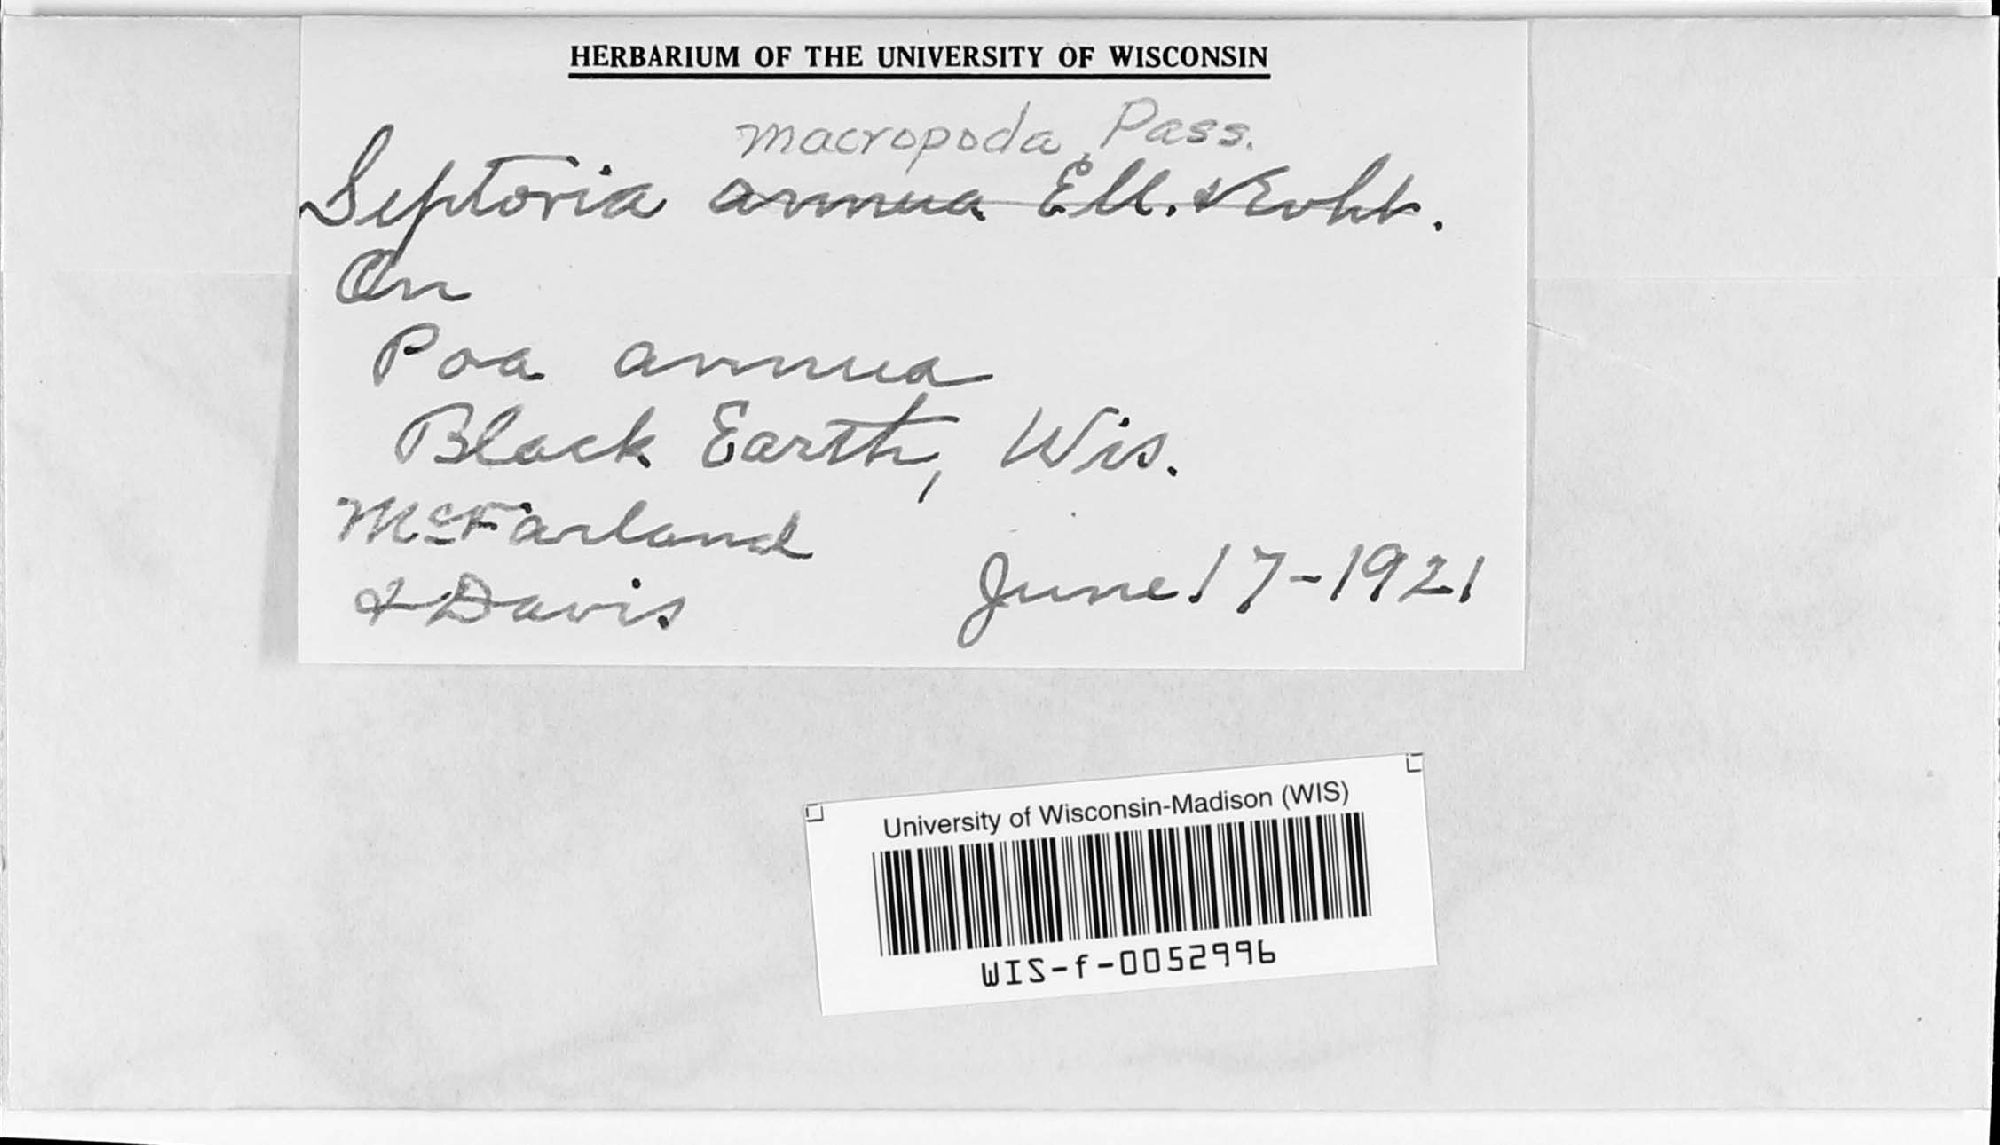 HERBARIUM OF THE UNIVERSITY OF WISCONSIN
macropoda Pass.
Septoria annua Ell. &
On
Poa annua
Black Earth, Wis.
McFarland
& Davis
June 17-1921
University of Wisconsin-Madison (WIS)
WIS-f-0052996